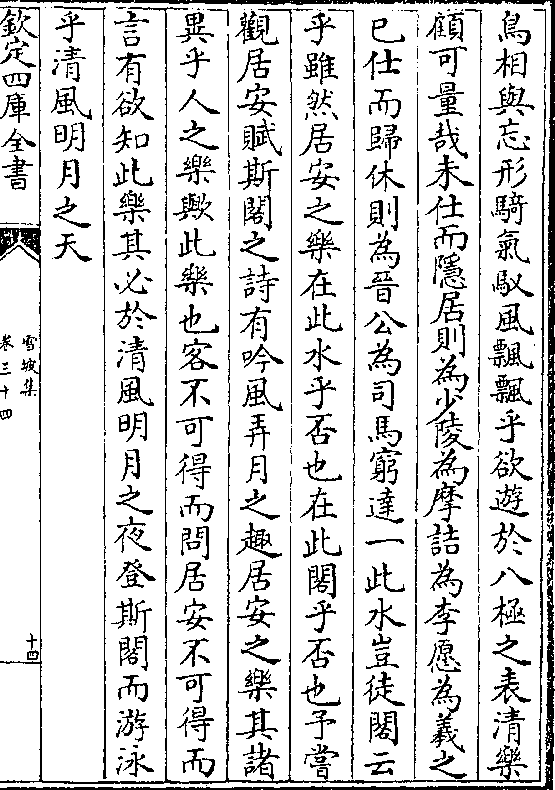 鳥相與忘形騎氣馭風飄飄乎欲遊於八極之表清樂
顧可量哉未仕而隱居則為少陵為摩詰為李愿為羲之
已仕而歸休則為晉公為司馬窮達一此水豈徒閣云
乎雖然居安之樂在此水乎否也在此閣乎否也予嘗
觀居安賦斯閣之詩有吟風弄月之趣居安之樂其諸
異乎人之樂歟此樂也客不可得而問居安不可得而
言有欲知此樂其必於清風明月之夜登斯閣而游泳
乎清風明月之天
欽定四庫全書
雪坡集
卷三十四
十四